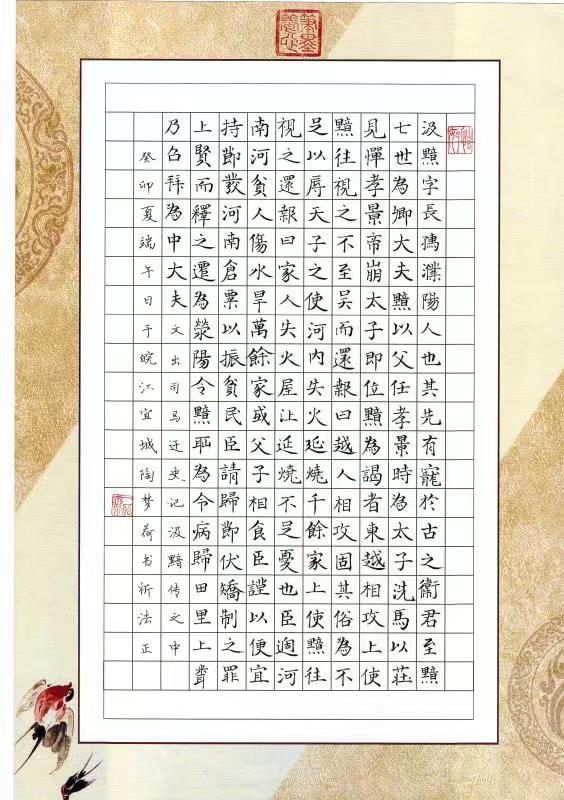 筆墨養心
汲黯字長孺濮陽人也其先有寵於古之衞君至黯
七世為卿大夫黯以父任孝景時為太子洗馬以莊
見憚孝景帝崩太子即位黯為謁者東越相攻上使
黯往視之不至吴而還報曰越人相攻固其俗為不
足以辱天子之使河内失火延燒千餘家上使黯往
視之還報曰家人失火屋比延燒不足憂也臣過河
南河貧人傷水旱萬餘家或父子相食臣謹以便宜
持節發河南倉粟以振貧民臣請歸節伏矯制之罪
上賢而釋之遷為滎陽令黯耻為令病歸田里上聞
乃召拜為中大夫文出司马迁史记汲黯传文中
癸卯夏端午日于皖江宜城陶梦荷书祈法正